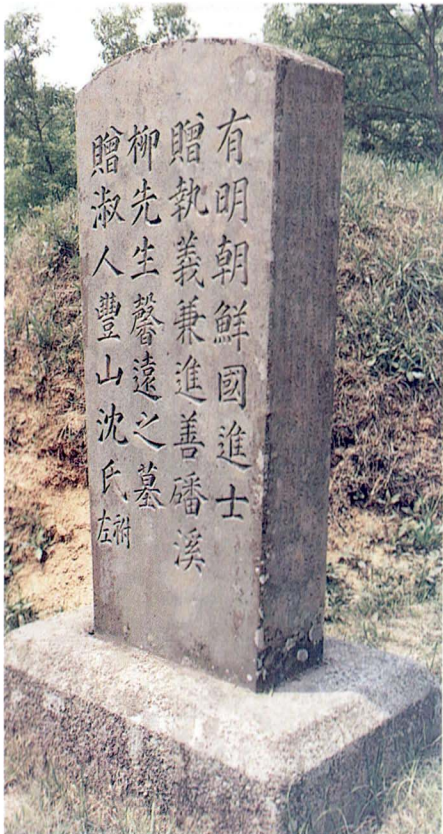 有明朝鮮國進士
贈執義兼進善磻溪
柳先生馨遠之墓
贈淑人豐山沈氏祔左